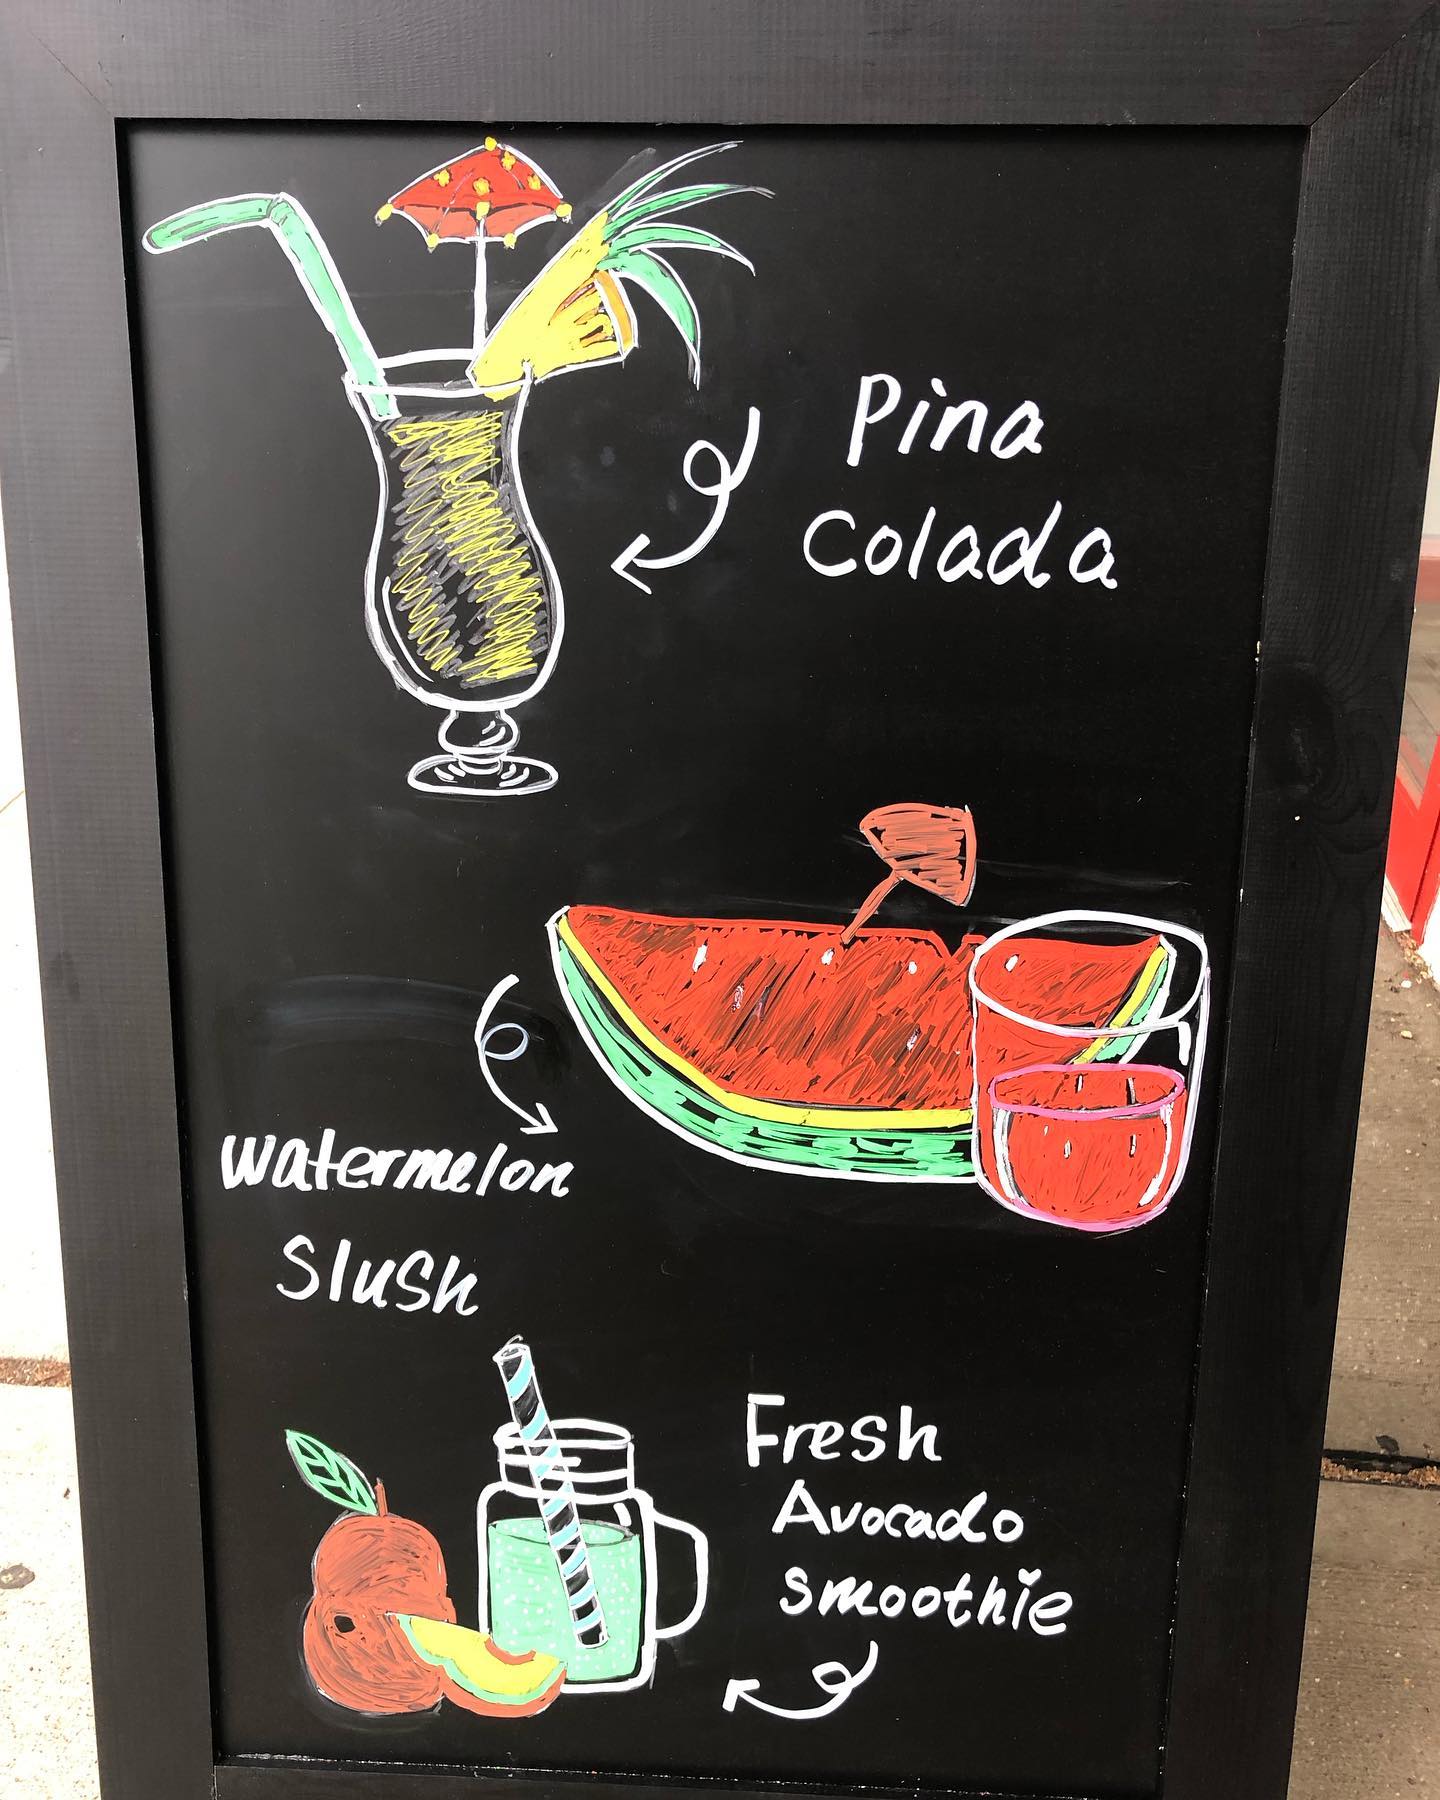 Pina
Colada
watermelon
Slush
Fresh
Avocado
smoothie